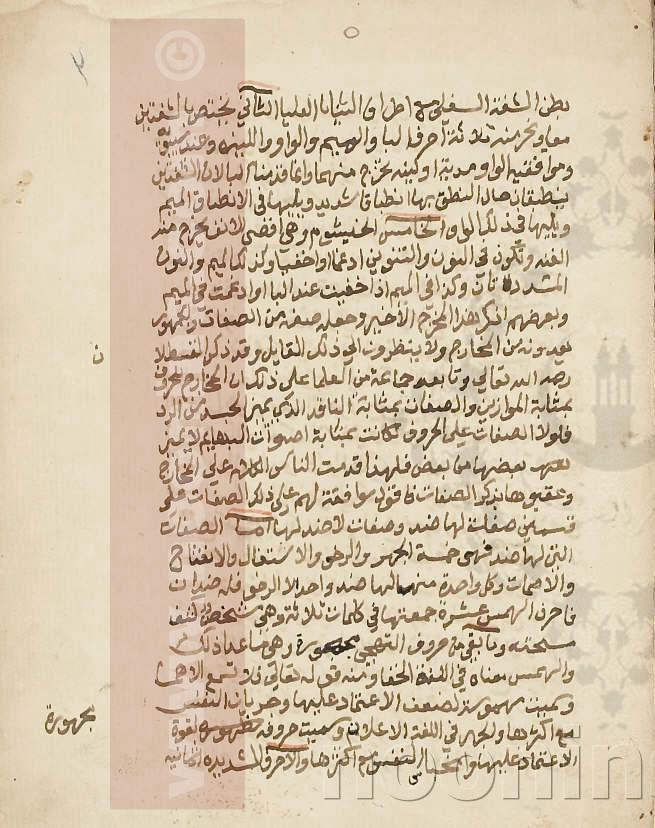 بطن الشفة السفلي مع اطراف الثنايا العليا الثاني يختص بالشفتين
معا ويخرج منه ثلاثة احرف البا والميم والواو اللينة وعند سيبويه
وموافقيه الواو مدية او لينه تخرج منهما وانما قدمنا البا لان الشفتين
ينطبقان حال النطق بها انطباقا شديد ويليها في الانطباق الميم
ويليها في ذلك الواو الخامس الخيشوم وهي اقصي الانف يخرج منه
الغنه وتكون في النون والتنوين ادغما او اخفيا وكذلك الميم والنون
المشددتان وكذا في الميم اذا اخفيت عند البا او ادغمت في الميم
وبعضهم انكر هذا المخرج الاخير وجعله صفة من الصفات والجمهور
يعدونه من المخارج ولا ينظرون الي ذلك القايل وقد ذكر القسطلا
رحمه الله تعالي وتابعه جماعة من العلما علي ذلك ان المخارج للحروف
بمثابة الموازين والصفات بمثابة الناقد الذي يميز الجيد من الردي
فلولا الصفات علي الحروف لكانت بمثابة اصوات البهايم لا يميز
بعضها من بعض فلهذا قدمت الناس الكلام علي المخارج
وعقبوها بذكر الصفات فاقول موافقة لهم علي ذلك الصفات علي
قسمين صفات لها ضد وصفات لا ضد لها اما الصفات
التي لها ضد فهي خمسة الجهر والرخو والاستفال والانفتاح
والاصمات وكل واحدة منها لها ضد واحد الا الرخو فله ضدان
فاحرف الهمس عشرة جمعتها في كلمات ثلاثة وهي شخص كثف
وما بقي من حروف التهجي مجهورة وهي ما عدا ذلك
والهمس معناه في اللغة الخفا ومنه قوله تعالي فلا تسمع الا همسا
وسميت مهموسة لضعف الاعتماد عليها وجريان النفس
مع اكثرها والجهر في اللغة الاعلان وسميت حروفه مجهورة لقوة
الاعتماد عليها وانحباس النفس مع اكثرها والاحرف الشديدة ثمانية
مجهورة
ن
noorlin